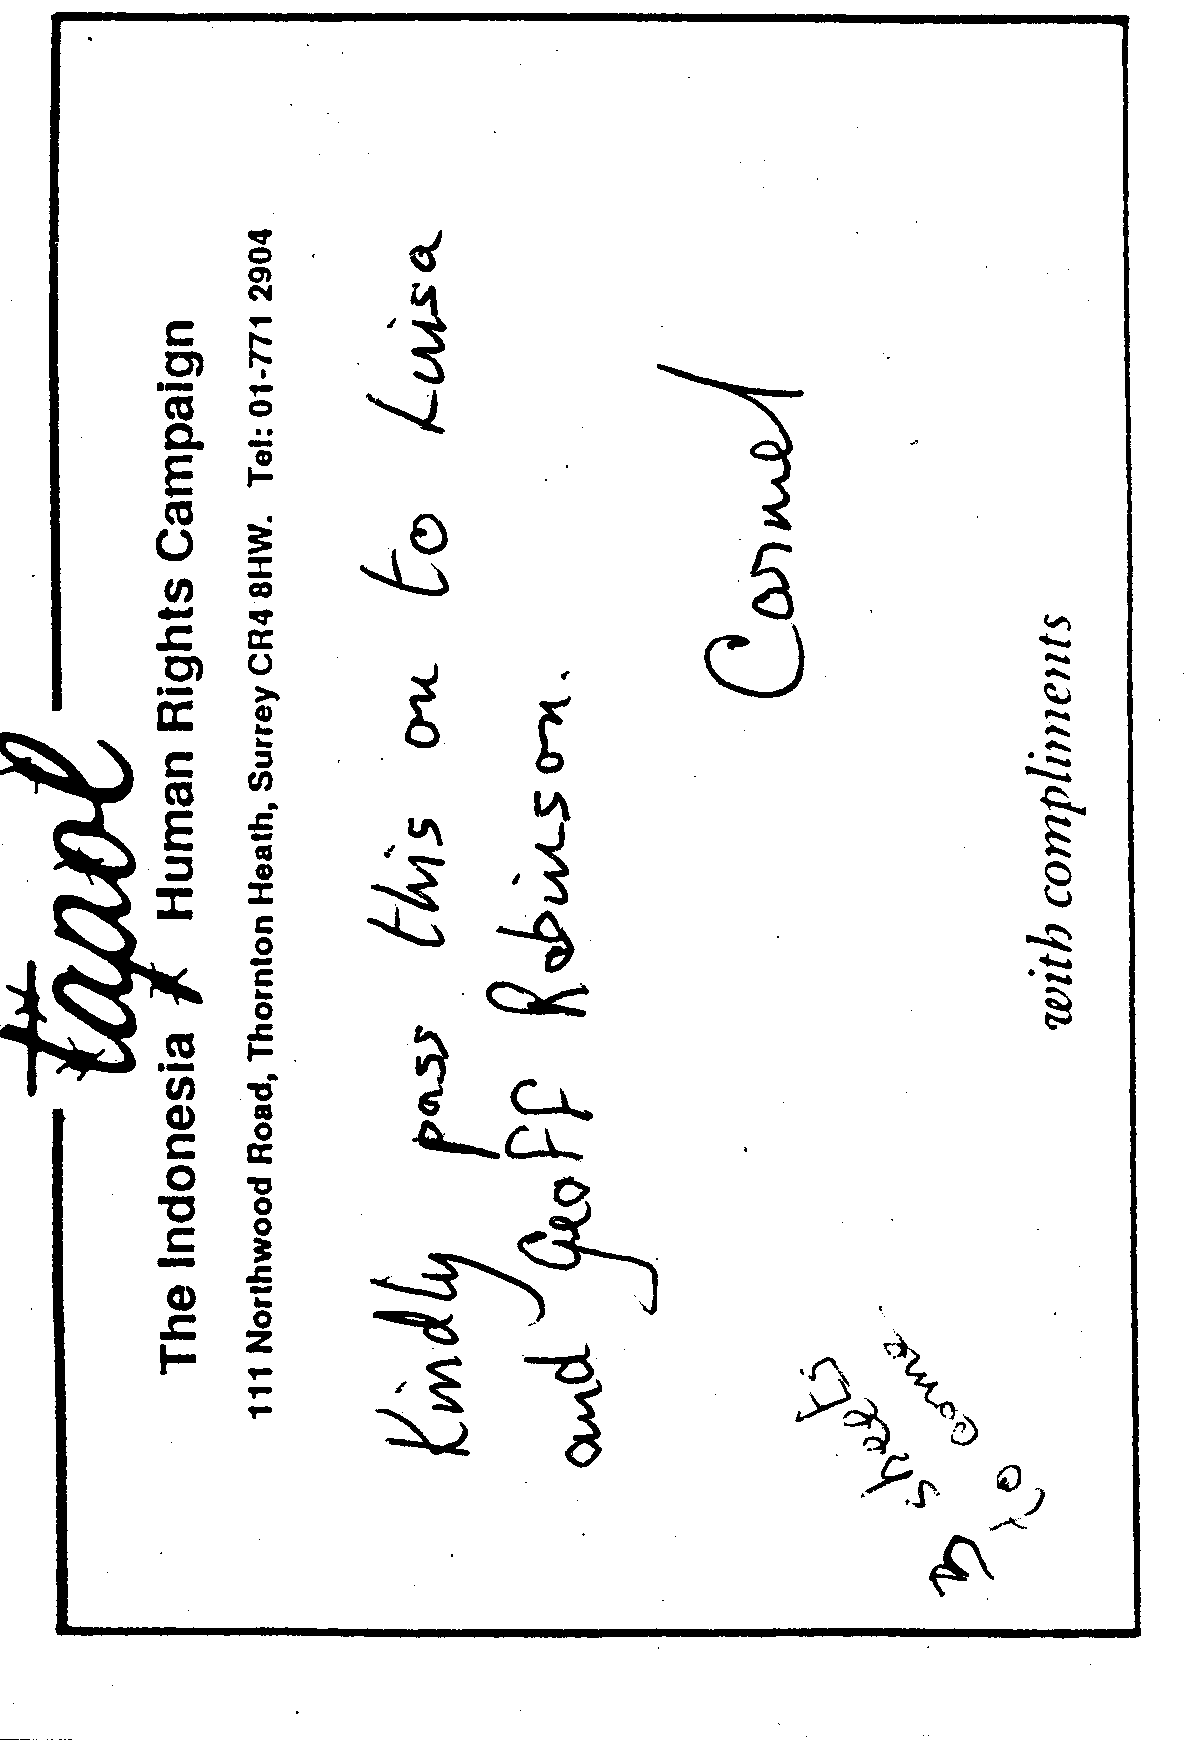 tapol
The Indonesia Human Rights Campaign
111 Northwood Road, Thornton Heath, Surrey CR4 8HW. Tel: 01-771 2904
Kindly pass this on to Luisa
and Geoff Robinson.
Carmel
3 sheets
to come
with compliments